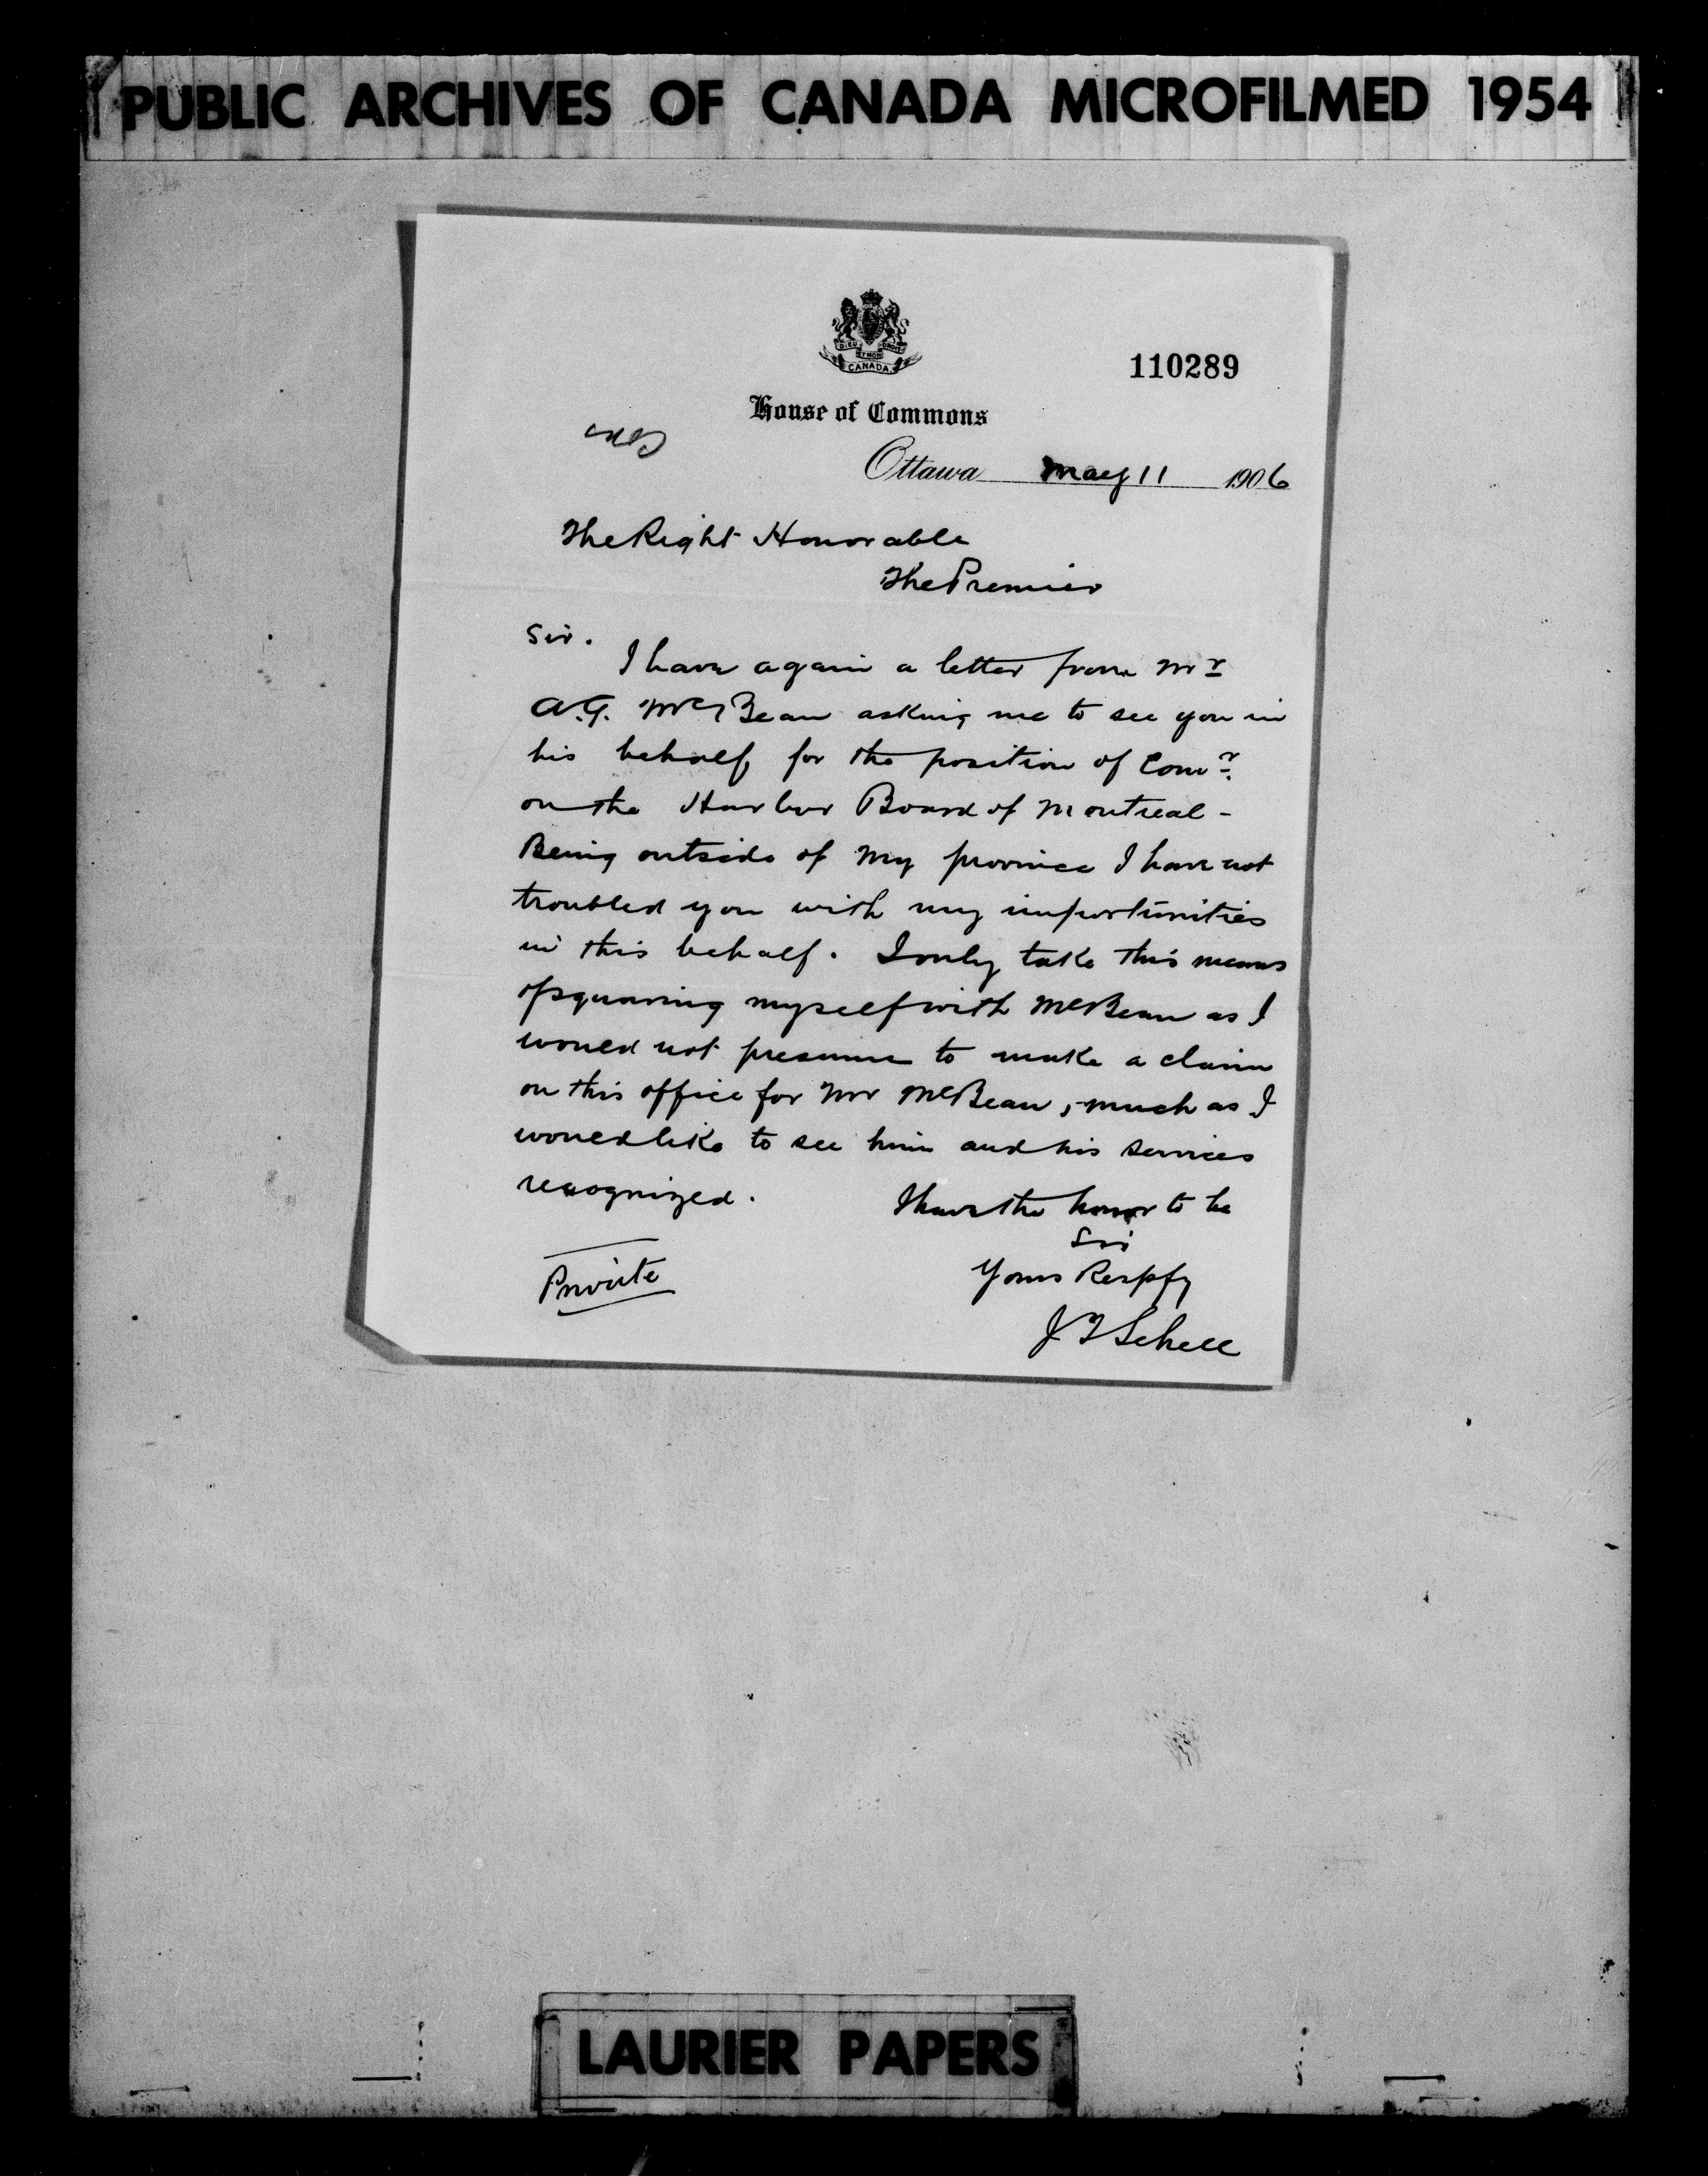 PUBLIC ARCHIVES OF CANADA MICROFILMED 1954
DIEU ET MON DROIT
CANADA
110289
House of Commons
Ottawa May 11 1906
The Right Honorable
The Premier
Sir.
I have again a letter from Mr
A.G. McBean asking me to see you in
his behalf, for the position of Comr
on the Harbor Board of Montreal -
Being outside of my province I have not
troubled you with my importunities
in this behalf. I only take this means
of squaring myself with McBean as I
would not presume to make a claim
on this office for Mr McBean, much as I
would like to see him and his services
recognized.
I have the honor to be
Sir
Yours Respfy
Private
J T Schell
LAURIER PAPERS